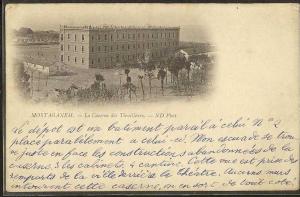 MOSTAGANEM. — La Caserne des Tirailleurs. — ND Phot.
Le dépot est un batiment pareil à celui N° 2
placé parallèlement a celui-ci. Mon escadre de tir
juste en face les constructions abandonnées de la
caserne, 3 les cabinets, 4 cantine. Cette vue est prise des
remparts de la ville derrière le théâtre. Aucuns murs
entourent cette caserne, on en sort de tout coté.